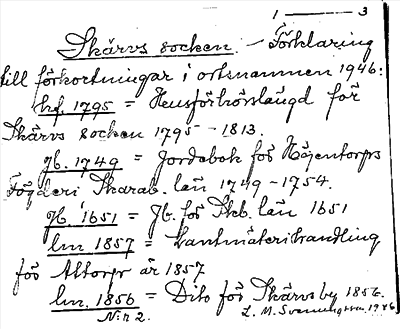 1 — 3
Skärvs socken. – Förklaring
till förkortningar i ortsnamnen 1946:
hf. 1795 = Husförhörslängd för
Skärvs socken 1795 – 1813.
Jb. 1749 = Jordebok för Högentorps
Fögderi Skarab. län 1749 – 1754.
Jb. 1651 = Jb. för Skb. län 1651
lm 1857 = Lantmäterihandling
för Attorps år 1857
lm. 1856 = Dito för Skärvs by 1856.
N:r 2. L. M. Svenungsson. 1946